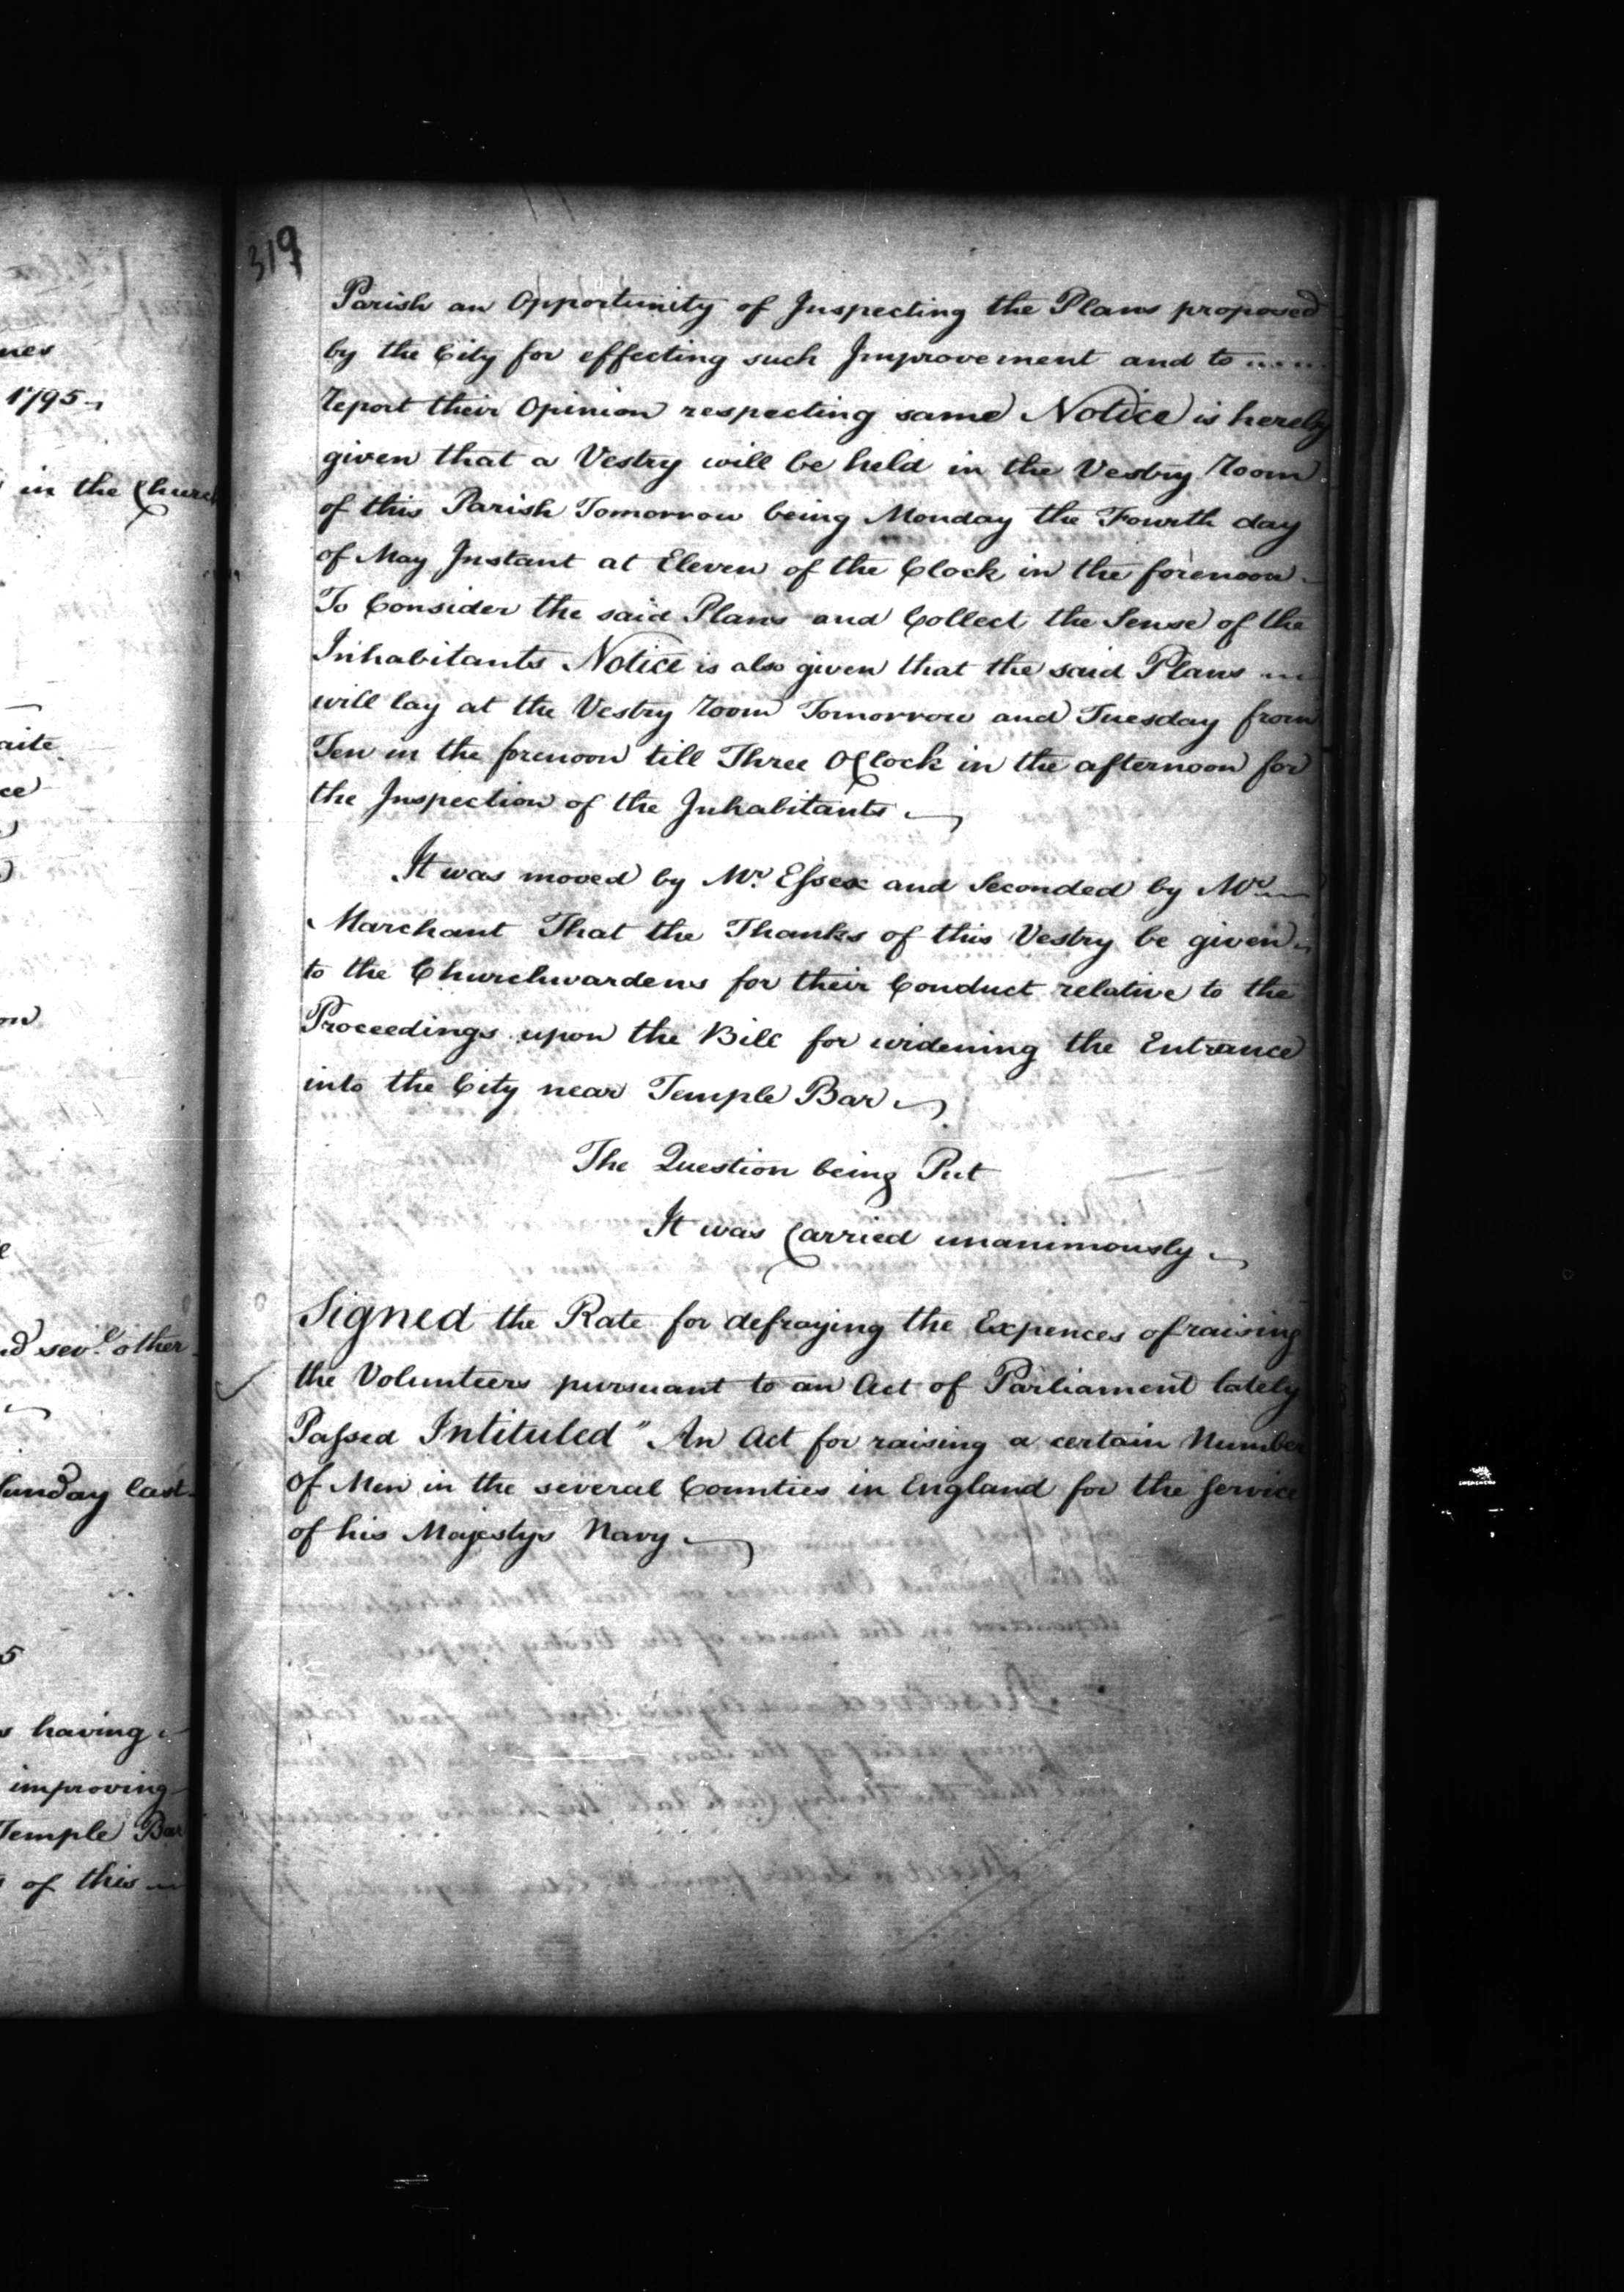 nes
1795
in the Church
aite
ce
on
sev.l other
Sunday last
5
having
improving
Temple Bar
of this
319
Parish an Opportunity of Inspecting the Plans proposed
by the City for effecting such Improvement and to .....
report their Opinion respecting same Notice is hereby
given that a Vestry will be held in the Vestry Room
of this Parish Tomorrow being Monday the Fourth day
of May Instant at Eleven of the Clock in the forenoon
To Consider the said Plans and Collect the Sense of the
Inhabitants Notice is also given that the said Plans
will lay at the Vestry Room Tomorrow and Tuesday from
Ten in the forenoon till Three OClock in the afternoon for
the Inspection of the Inhabitants
It was moved by Mr. Essex and Seconded by Mr
Marchant That the Thanks of this Vestry be given
to the Churchwardens for their Conduct relative to the
Proceedings upon the Bill for widening the Entrance
into the City near Temple Bar
The Question being Put
It was Carried unanimously
Signed the Rate for defraying the Expences of raising
the Volunteers pursuant to an Act of Parliament lately
Passed Intituled " An Act for raising a certain Number
of Men in the several Counties in England for the Service
of his Majestys Navy